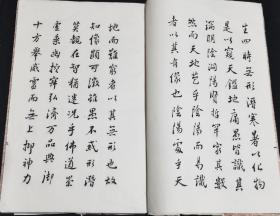 生四時無形潛寒暑以化物
是以窺天鑑地庸愚皆識其
端明陰洞陽賢哲罕窮其數
然而天地苞乎陰陽而易識
者以其有像也陰陽處乎天
地而難窮者以其無形也故
知像顯可徵雖愚不惑形潛
莫覩在智猶迷況乎佛道崇
虛乘幽控寂弘濟萬品典御
十方舉威靈而無上抑神力